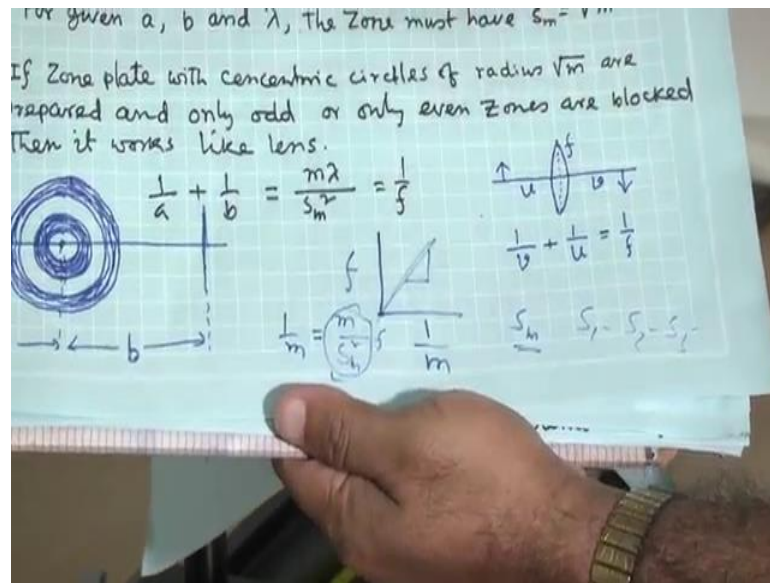 For given a, b and λ, The Zone must have Sm =
If Zone plate with concentric circles of radius √m are
repared and only odd or only even Zones are blocked
Then it works like lens.
1/a + 1/b = mλ/Sm² = 1/f
f
u v
1/v + 1/u = 1/f
f
1/m = m/Sm² f 1/m
Sm S1 - S2 - S3 -
b